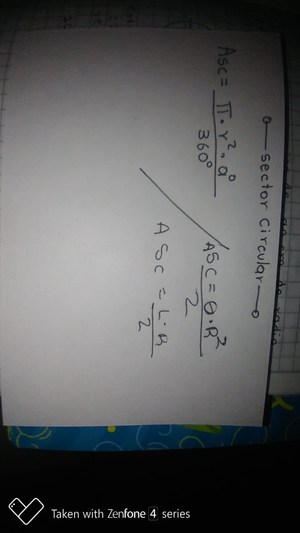 sector Circular
Asc = π • r² • a°
360°
Asc = θ • R²
2
Asc = L • R
2
Taken with Zenfone 4 series